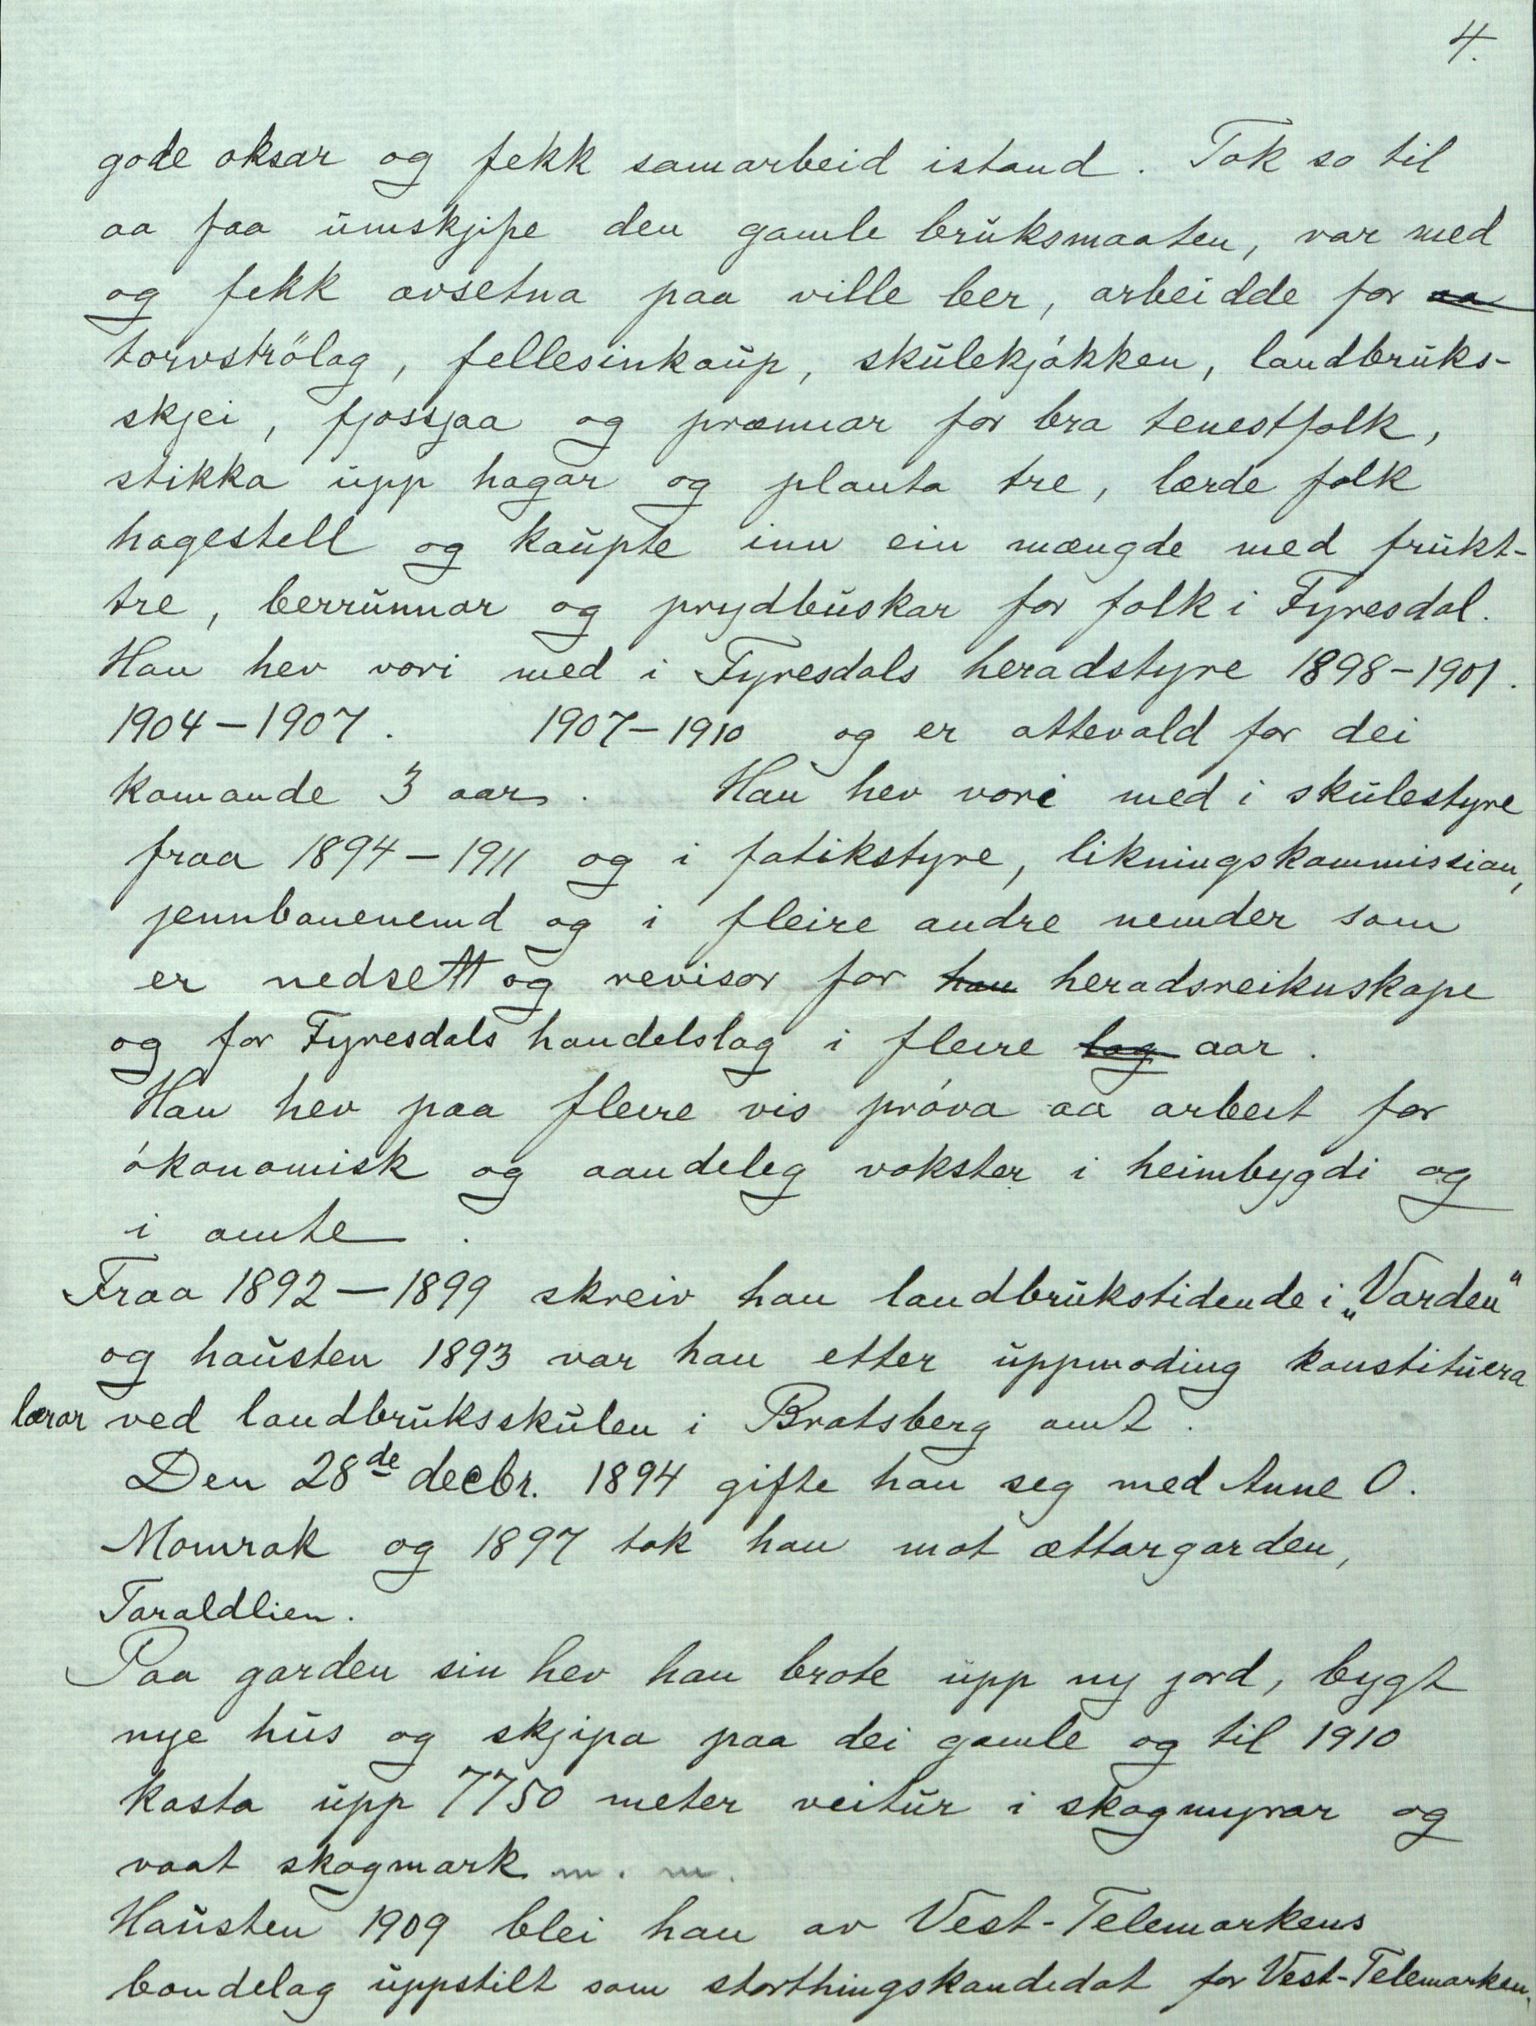 4.
gode oksar og fekk samarbeid istand. Tok so til
aa faa umskjipe den gamle bruksmaaten, var med
og fekk avsetna paa ville ber, arbeidde for aa
torvströlag, fellesinkaup, skulekjökken, landbruks-
skjei, fjossjaa og præmiar for bra tenestfolk,
stikka upp hagar og planta tre, lærde folk
hagestell og kaupte inn ein mængde med frukt-
tre, berrunnar og prydbuskar for folk i Fyresdal.
Han hev vori med i Fyresdals heradstyre 1898-1901.
1904-1907. 1907-1910 og er attevald for dei
komande 3 aar. Han hev vori med i skulestyre
fraa 1894-1911 og i fatikstyre, likningskommission,
jennbanenemd og i fleire andre nemder som
er nedsett og revisor for han heradsreiknskape
og for Fyresdals handelslag i fleire lag aar.
Han hev paa fleire vis pröva aa arbeit for
ökonomisk og aandeleg vokster i heimbygdi og
i amte.
Fraa 1892-1899 skreiv han landbrukstidende i „Varden"
og hausten 1893 var han etter uppmoding konstituera
lærar ved landbruksskulen i Bratsberg amt.
Den 28de decbr. 1894 gifte han seg med Anne O.
Momrak og 1897 tok han mot ættargarden,
Taraldlien.
Paa garden sin hev han brote upp ny jord, bygt
nye hus og skjipa paa dei gamle og til 1910
kasta upp 7750 meter veitur i skogmyrar og
vaat skogmark m. m.
Hausten 1909 blei han av Vest-Telemarkens
bondelag uppstilt som storthingskandidat for Vest-Telemarken.